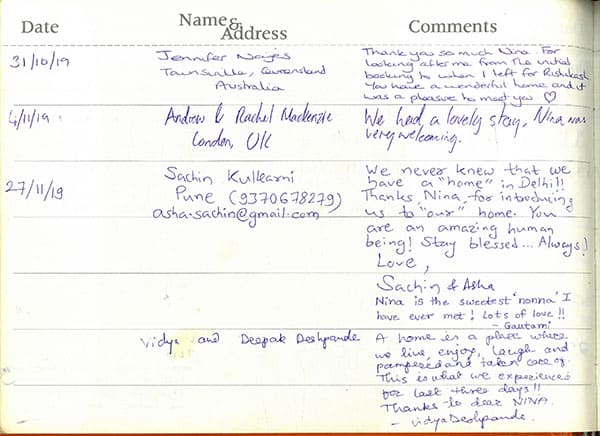 Date Name & Address Comments
31/10/19 Jennifer Noyes
Townsville, Queensland
Australia
Thank you so much Nina. For
looking after me from the initial
booking to when I left for Rishikesh
You have a wonderful home and it
was a pleasure to meet you ♡
4/11/19 Andrew & Rachel Mackenzie
London, UK
We had a lovely stay, Nina was
very welcoming.
27/11/19 Sachin Kulkarni
Pune (9370678279)
asha.sachin@gmail.com
We never knew that we
have a "home" in Delhi!!
Thanks, Nina, for introducing
us to "our" home. You
are an amazing human
being! Stay blessed... Always!
Love,
Sachin & Asha
Nina is the sweetest 'nonna' I
have ever met! Lots of love!!
- Gautami
Vidya and Deepak Deshpande
A home is a place where
we live, enjoy, laugh and
pampered and taken care of.
This is what we experienced
for last three days!!
Thanks to dear NINA.
- Vidya Deshpande.